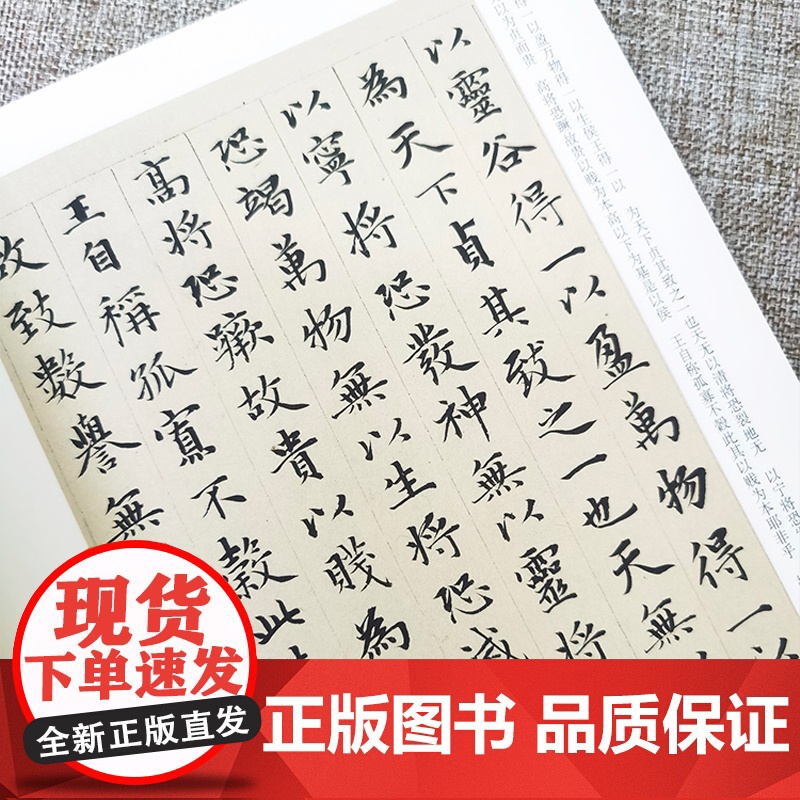 得一以盈万物得一以生侯王得一以 为天下贞其致之一也天无以清将恐裂地无 以宁将恐
以为贞而贵高将恐蹶故贵以贱为本高以下为基是以侯 王自称孤寡不毂此其以贱为本耶非乎
以靈谷得一以盈萬物得一以
為天下貞其致之一也天無
以寧將恐發神無以靈將
恐竭萬物無以生將恐滅
高將恐蹶故貴以賤為
王自稱孤寡不穀此
故致數譽無
现货
下单速发
全新正版直发
正版图书 品质保证